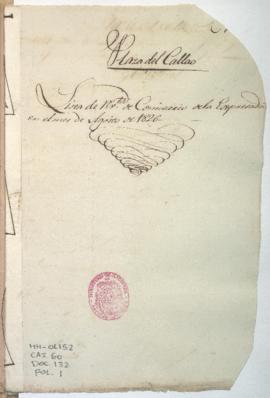 Plaza del Callao
Lista de Rta de Comisario de la Expresada
en el mes de Agosto de 1826
HH-OL152
CAJ 60
DOC. 132
FOL. 1